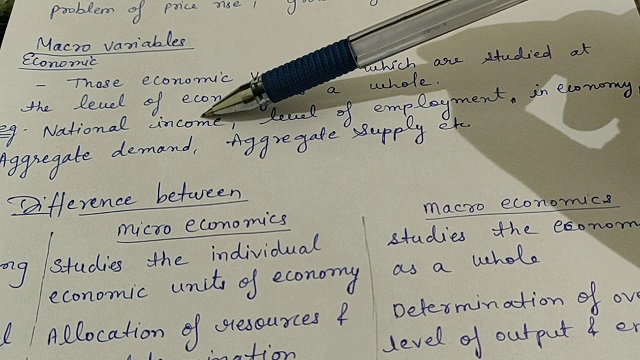 problem of price rise,
Macro variables
Economic
- Those economic which are studied at
the level of econ a whole.
eg. National income, level of employment. in economy,
Aggregate demand, Aggregate supply etc
Difference between
micro economics
Macro economics
Studies the individual
economic units of economy
Allocation of resources &
studies the econom
as a whole
Determination of ov
level of output & em